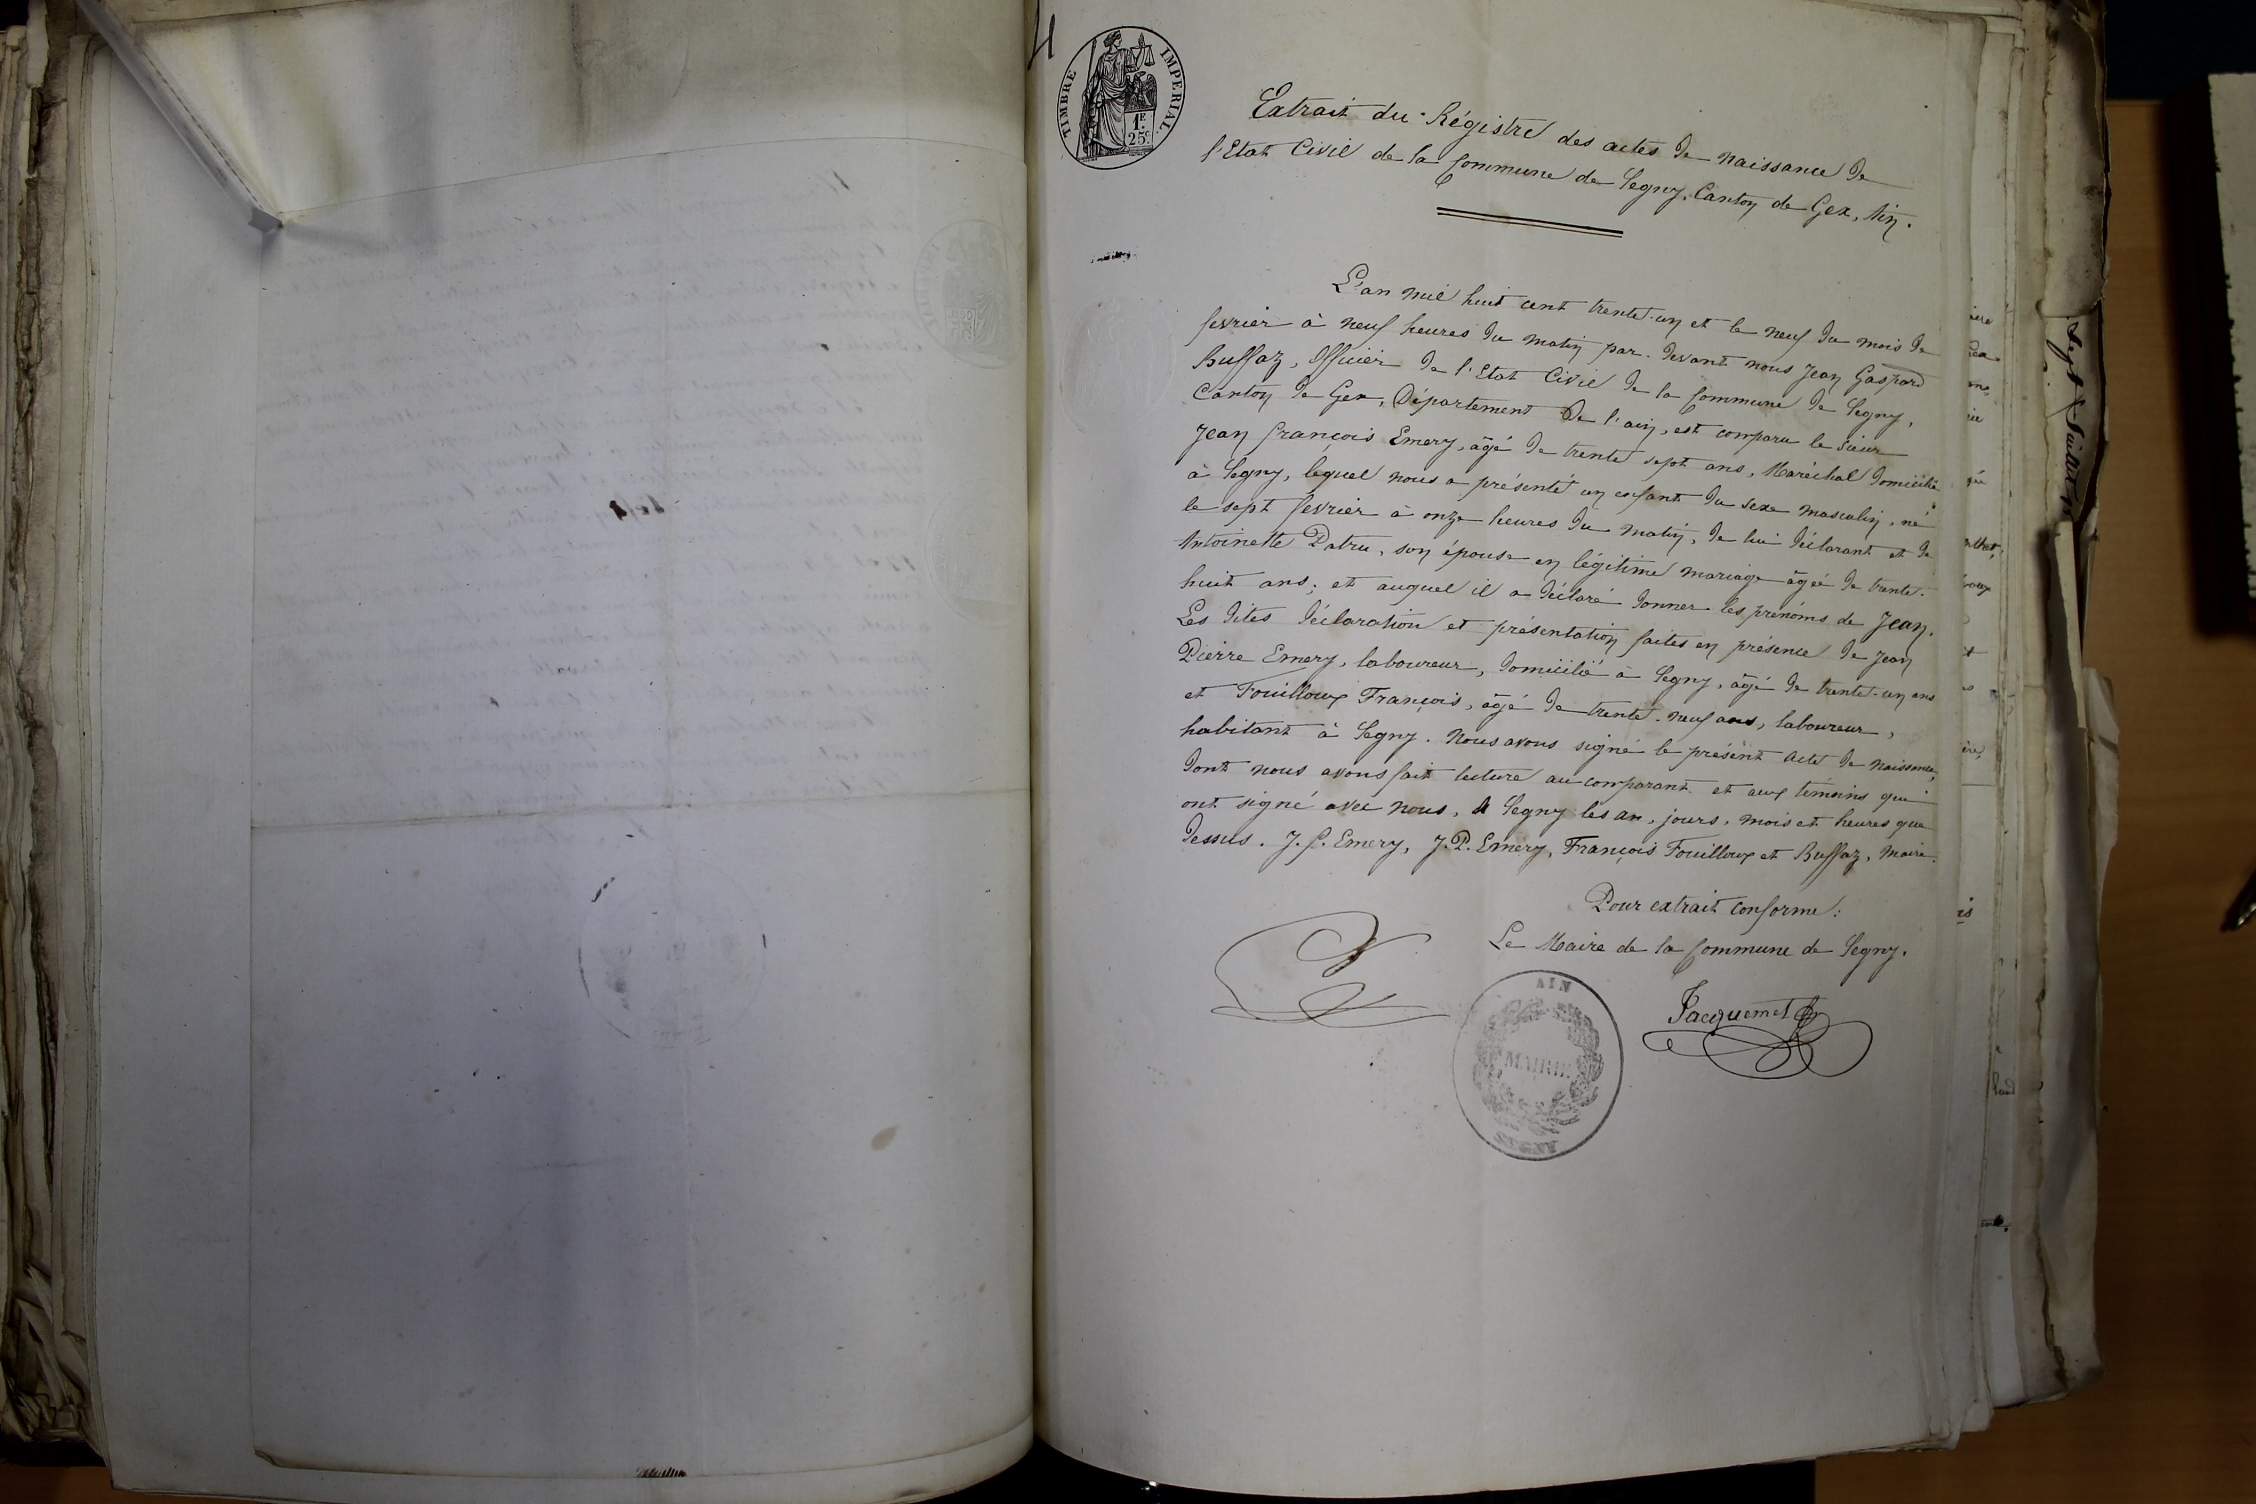 4
TIMBRE IMPERIAL.
1F.
25C.
Extrait du Régistre des actes de naissance de
l'Etat Civil de la Commune de Segny, Canton de Gex, Ain.
L'an mil huit cent trente-un et le neuf du mois de
fevrier à neuf heures du matin par-devant nous Jean Gaspard
Buffaz, Officier de l'Etat Civil de la Commune de Segny,
Canton de Gex, Département de l'ain, est comparu le Sieur
Jean François Emery, âgé de trente sept ans, Maréchal domicilié
à Segny, lequel nous a présenté un enfant du sexe masculin, né
le sept fevrier à onze heures du matin, de lui déclarant et de
Antoinette Patru, son épouse en légitime mariage âgée de trente-
huit ans; et auquel il a déclaré donner les prénoms de Jean.
Les dites déclaration et présentation faites en présence de Jean
Pierre Emery, laboureur, domicilié à Segny, âgé de trente-un ans
et Fouilloux François, âgé de trente-neuf ans, laboureur,
habitant à Segny. Nous avons signé le présent acte de naissance,
dont nous avons fait lecture au comparant et aux témoins qui
ont signé avec nous, à Segny les an, jours, mois et heures que
dessus. J. f. Emery, J. P. Emery, François Fouilloux et Buffaz, Maire.
Pour extrait conforme:
Le Maire de la Commune de Segny.
Jacquemet
AIN
MAIRIE
SEGNY